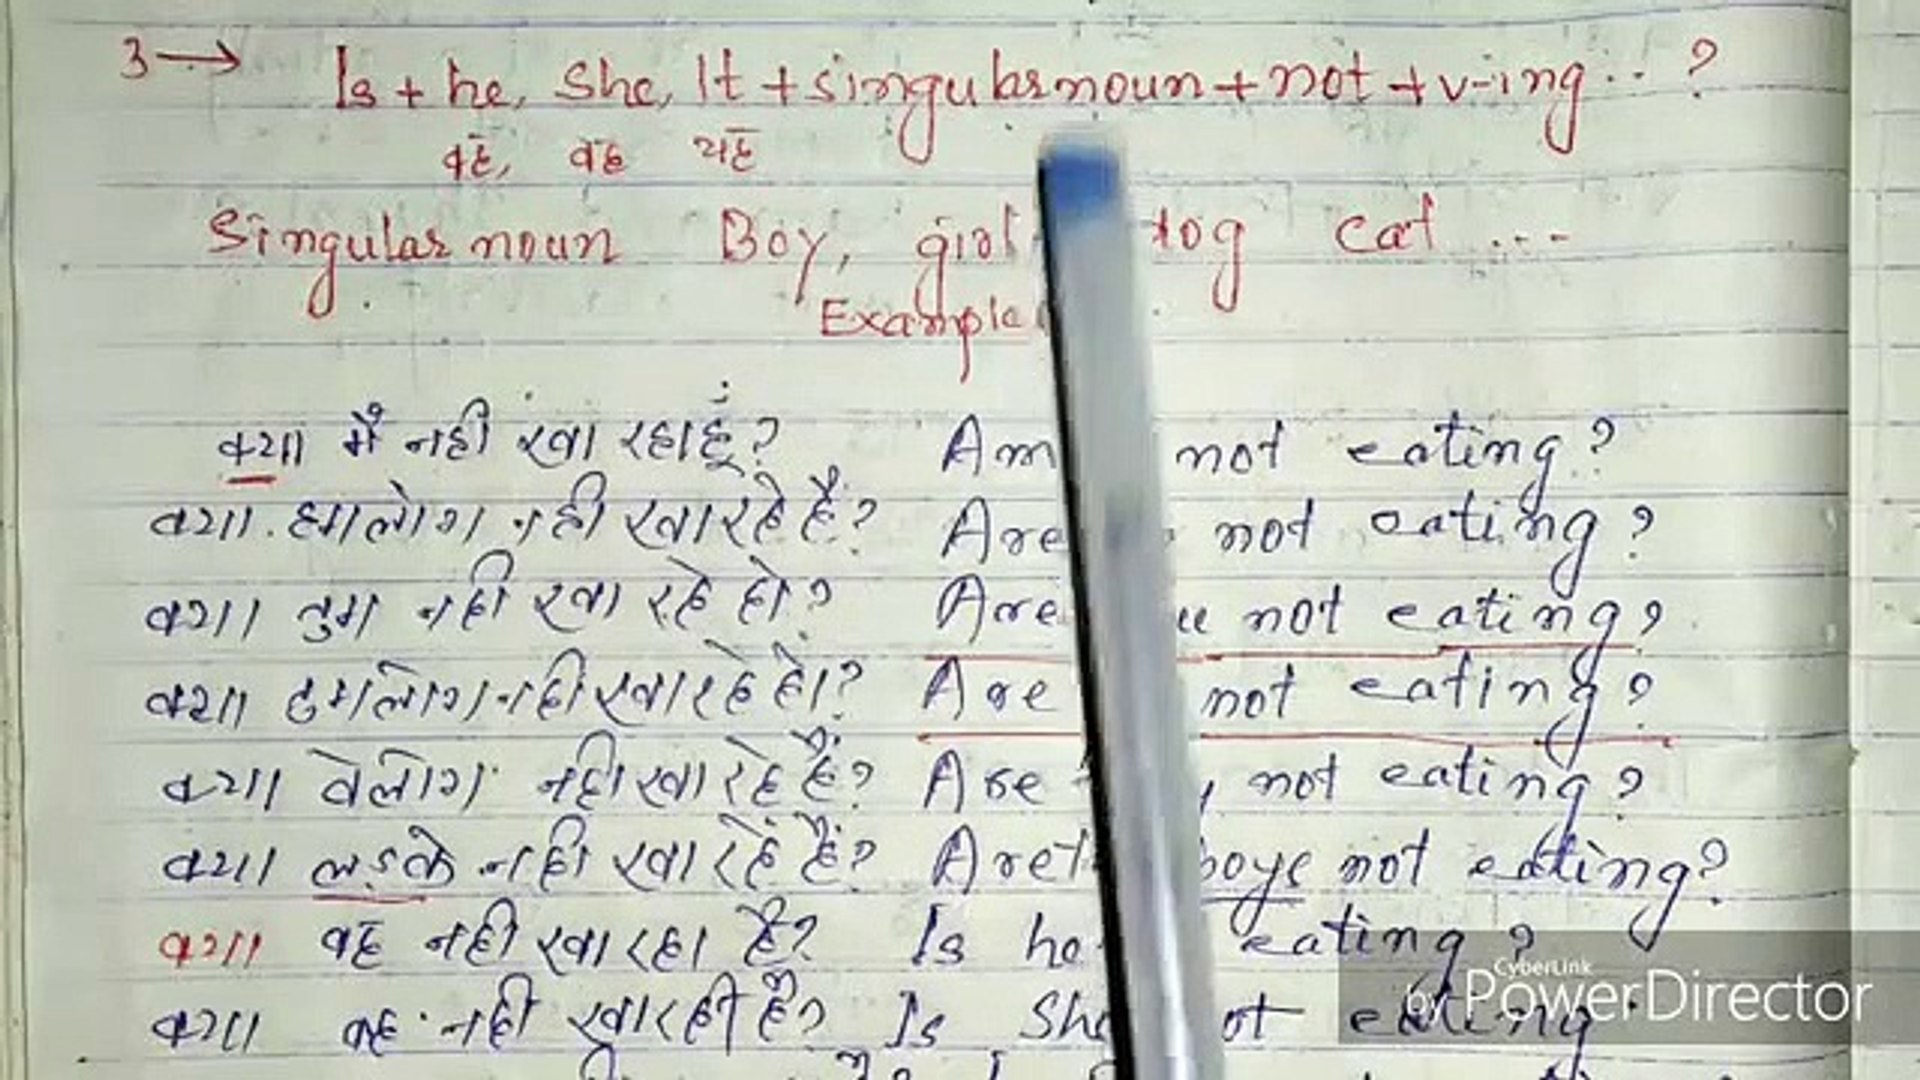 3→ Is + he, She, It + singular noun + not + v-ing.. ?
वह, वह यह
Singular noun Boy, girl dog cat ...
Example
क्या मैं नही खा रहा हूं? Am not eating?
क्या हमलोग नही खा रहे हैं? Are not eating?
क्या तुम नही खा रहे हो? Are not eating?
क्या तुमलोग नही खा रहे हो? Are not eating?
क्या वेलोग नही खा रहे हैं? Are not eating?
क्या लड़के नही खा रहे हैं? Are boys not eating?
क्या वह नही खा रहा है? Is he eating?
क्या वह नही खा रही है? Is She not eating
CyberLink
by PowerDirector